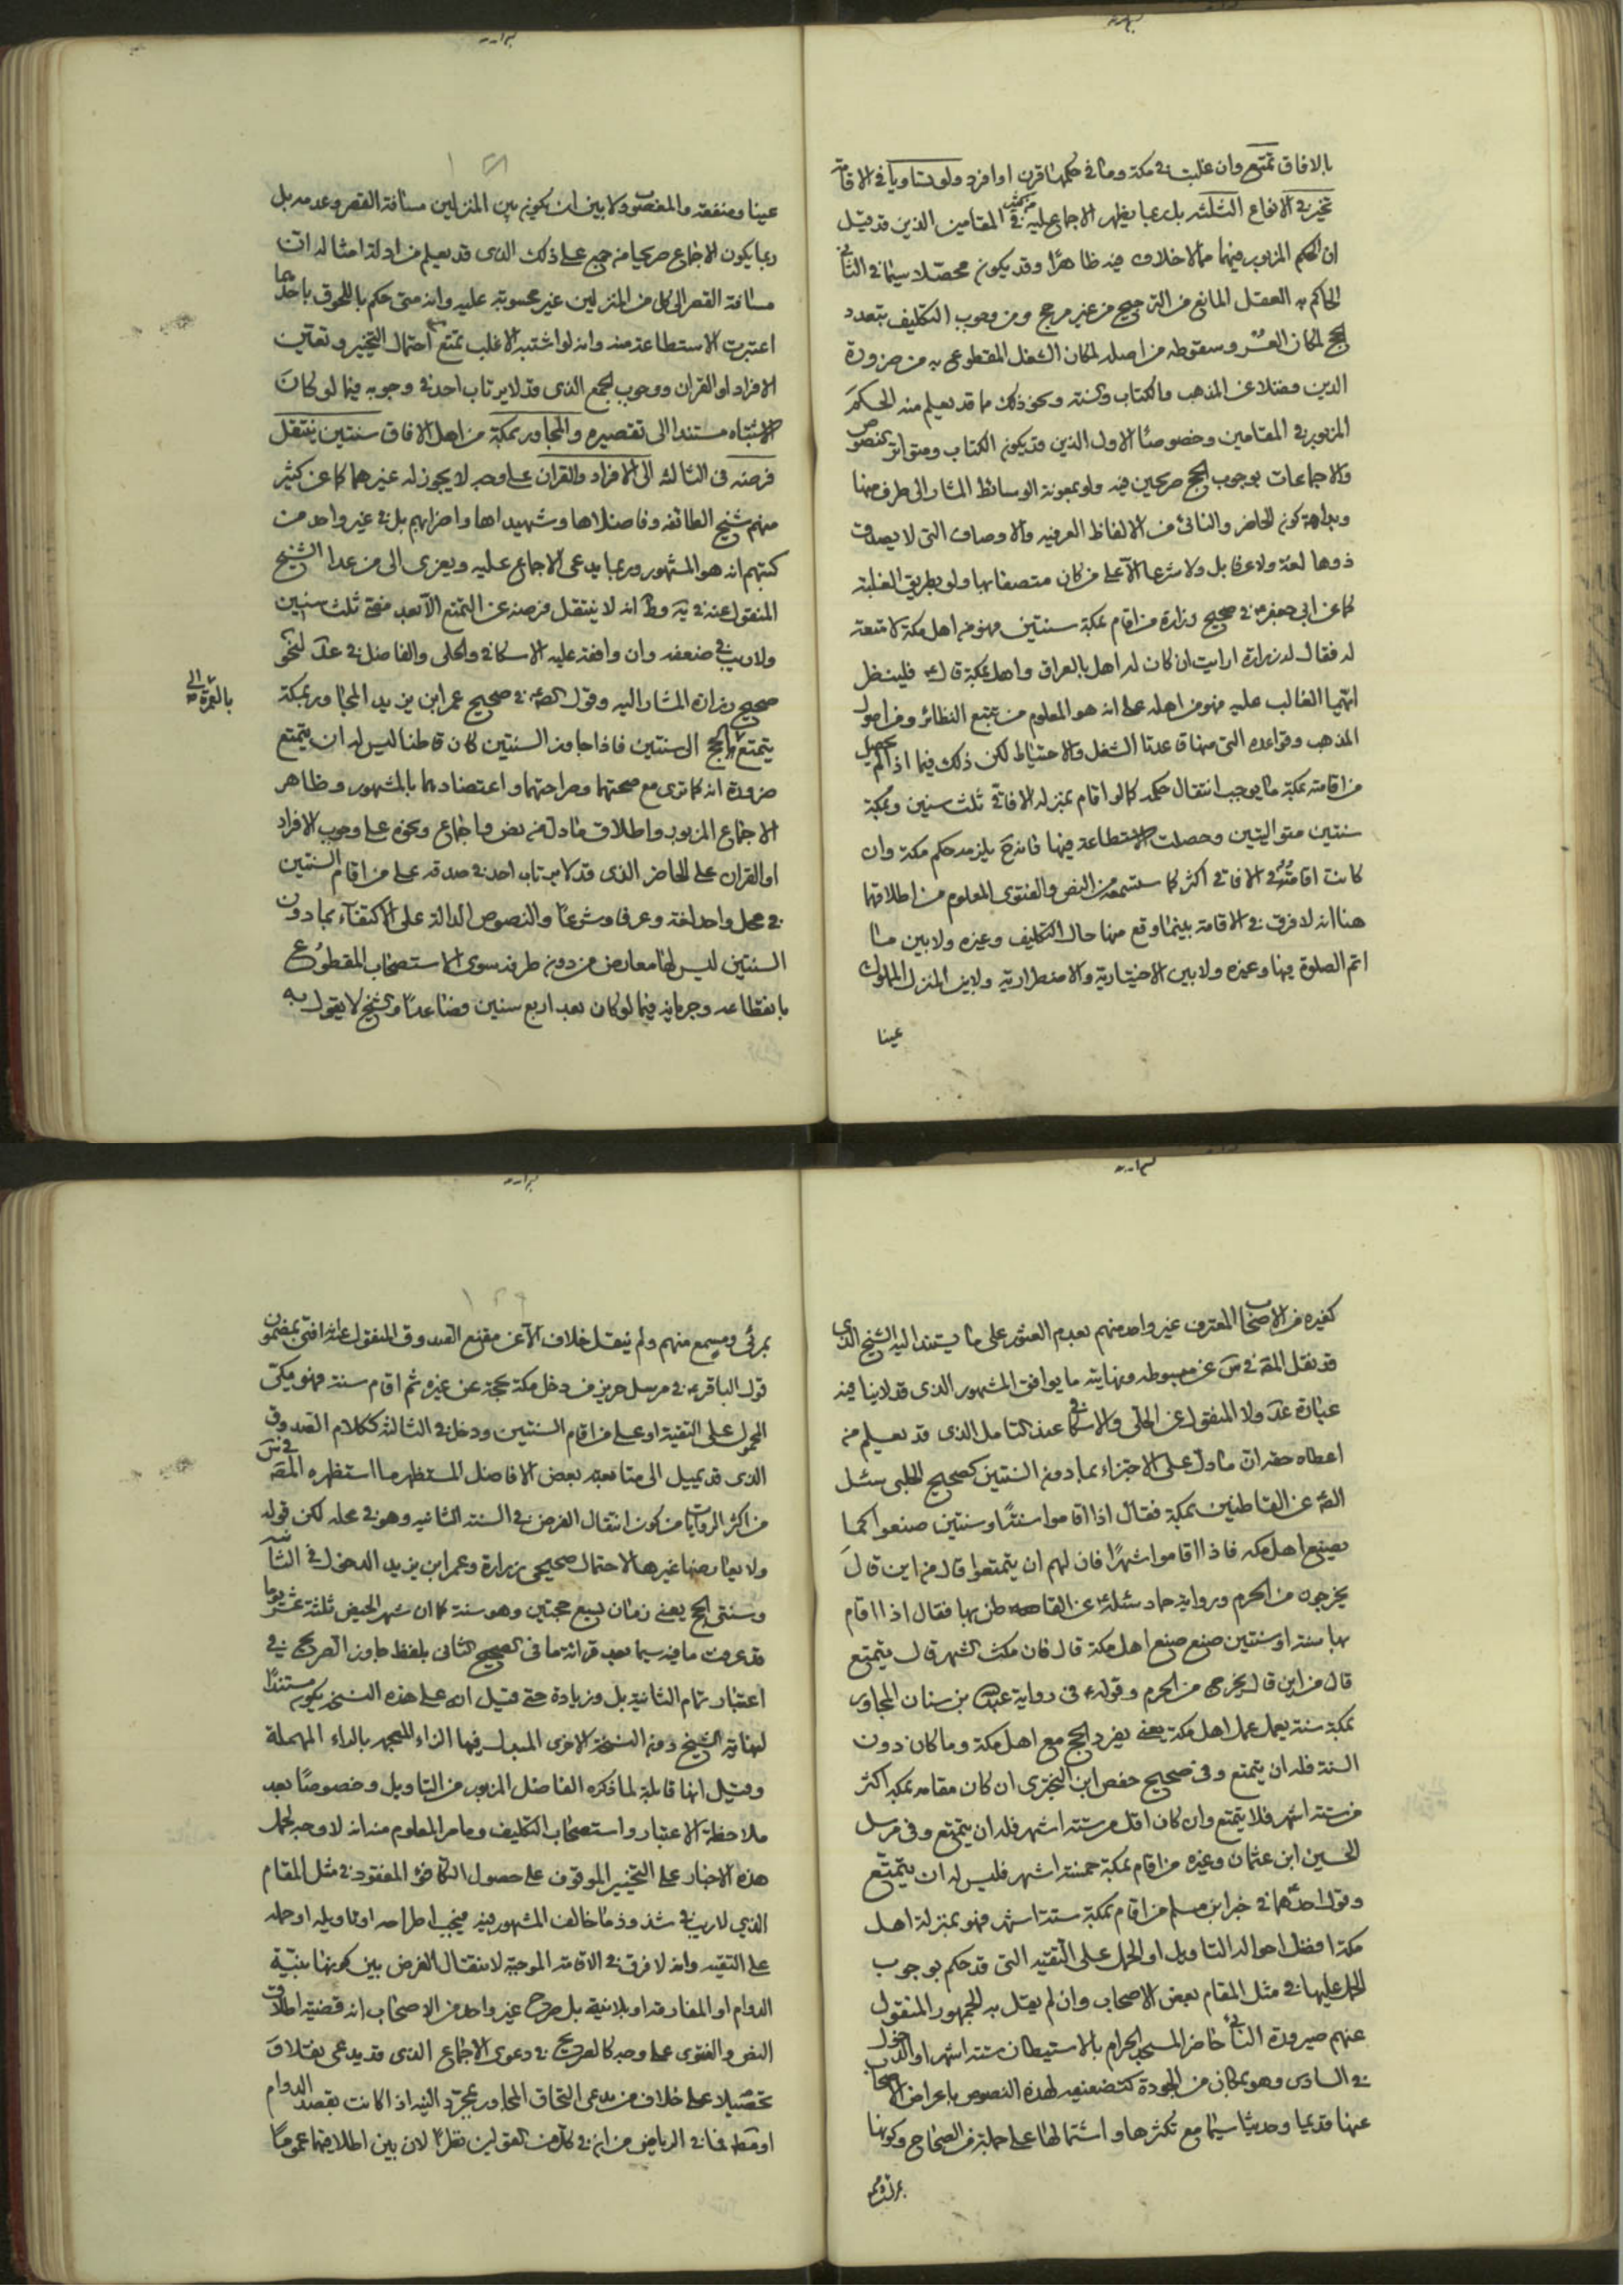 بالافاق تمتع وان غلبت في مكة وما في حكمها قرن او افرد ولو تساويا في الاقامة
تخير في الانواع الثلثة بل ربما يظهر الاجماع عليه في المقامين الذين قد قيل
ان الحكم المزبور فيهما مما لا خلاف فيه ظاهرا وقد يكون محصلا سيما في الثاني
الحاكم به العقل المانع من الترجيح من غير مرجح ومن وجوب التكليف بتعدد
الحج لمكان العسر وسقوطه من اصله لمكان الشغل المقطوع به من ضرورة
الدين فضلا عن المذهب والكتاب والسنة ونحو ذلك مما قد يعلم منه الحكم
المزبور في المقامين وخصوصا الاول الذين قد يكون الكتاب ومتواتر النصوص
والاجماعات بوجوب الحج صريحين فيه ولو بمعونة الوسائط المشار الى طرف منها
وبداهة كون الحاضر والنائي من الالفاظ العرفية والاوصاف التي لا يصدق
ذوها لغة ولا عرفا بل ولا شرعا الا على من كان متصفا بها ولو بطريق الغلبة
كما عن ابي جعفر ع في صحيح زرارة من اقام بمكة سنتين فهو من اهل مكة لا متعة
له فقال له زرارة ارايت ان كان له اهل بالعراق واهل بمكة قال ع فلينظر
ايهما الغالب عليه فهو من اهله على انه هو المعلوم من تتبع النظائر ومن اصول
المذهب وقواعده التي منها قاعدتا الشغل والاحتياط لكن ذلك فيما اذا لم يحصل
من اقامته بمكة ما يوجب انتقال حكمه كما لو اقام بمنزله الافاقي ثلث سنين وبمكة
سنتين متواليتين وحصلت الاستطاعة فيها فانه ح يلزمه حكم مكة وان
كانت اقامته في الافاقي اكثر كما ستسمعه من النص والفتوى المعلوم من اطلاقهما
هنا انه لا فرق في الاقامة بينما وقع منها حال التكليف وغيره ولا بين ما
اتم الصلوة فيها وغيره ولا بين الاختيارية والاضطرارية ولا بين المنزل المملوك
عينا
عينا ومنفعة والمغصوب ولا بين ان يكون بين المنزلين مسافة القصر وعدمه بل
ربما يكون الاجماع صريحا من جمع على ذلك الذي قد يعلم من ادلة امثاله ان
مسافة القصر الى كل من المنزلين غير محسوبة عليه وانه متى حكم باللحوق باحدهما
اعتبرت الاستطاعة منه وانه لو اشتبه الاغلب تمتع مع احتمال التخيير وتعيين
الافراد او القران ووجوب الجمع الذي قد لا يرتاب احد في وجوبه فيما لو كان
الاشتباه مستندا الى تقصيره والمجاور بمكة من اهل الافاق سنتين ينتقل
فرضه في الثالثة الى الافراد والقران على وجه لا يجوز له غيرهما كما عن كثير
منهم شيخ الطائفة وفاضلاها وشهيداها واضرابهم بل في غير واحد من
كتبهم انه هو المشهور وربما يدعى الاجماع عليه ويعزى الى من عدا الشيخ
المنقول عنه في ية وط انه لا ينتقل فرضه عن التمتع الا بعد مضي ثلث سنين
ولا ريب في ضعفه وان وافقه عليه الاسكافي والحلي والفاضل في عد لنحو
صحيح زرارة المشار اليه وقول الصادق ع في صحيح عمر ابن يزيد المجاور بمكة
يتمتع بالحج الى سنتين فاذا جاوز السنتين كان قاطنا ليس له ان يتمتع
بالعمرة الى
ضرورة انه كما ترى مع صحتهما وصراحتهما واعتضادهما بالمشهور وظاهر
الاجماع المزبور واطلاق ما دل من نص واجماع ونحوه على وجوب الافراد
او القران على الحاضر الذي قد لا يرتاب احد في صدقه على من اقام السنتين
في محل واحد لغة وعرفا وشرعا والنصوص الدالة على الاكتفاء بما دون
السنتين ليس لها معارض من دون طرفه سوى الاستصحاب المقطوع
بانقطاعه وجريانه فيما لو كان بعد اربع سنين فصاعدا والشيخ لا يقول به
كغيره من الاصحاب المعترف غير واحد منهم بعدم العثور على ما يستند اليه الشيخ الذي
قد نقل المص في س عن مبسوطه ونهايته ما يوافق المشهور الذي قد لا ينافيه
عبارة عد ولا المنقول عن الحلي والاسكافي عند التامل الذي قد يعلم من
اعطاه حقه ان ما دل على الاجتزاء بما دون السنتين كصحيح الحلبي سئل
الصادق عن القاطنين بمكة فقال اذا اقاموا سنة او سنتين صنعوا كما
يصنع اهل مكه فاذا اقاموا شهرا فان لهم ان يتمتعوا قال من اين قال
يخرجون من الحرم ورواية حماد سئله ع عن القاطن بها فقال اذا اقام
بها سنة او سنتين صنع صنع اهل مكة قال فان مكث الشهر قال يتمتع
قال من اين قال يخرج من الحرم وقوله ع في رواية عبدالله بن سنان المجاور
بمكة سنة يعمل عمل اهل مكة يعني يفرد الحج مع اهل مكة وما كان دون
السنة فله ان يتمتع وفي صحيح حفص ابن البختري ان كان مقامه بمكة اكثر
من ستة اشهر فلا يتمتع وان كان اقل من ستة اشهر فله ان يتمتع وفي مرسل
الحسين ابن عثمان وغيره من اقام بمكة خمسة اشهر فليس له ان يتمتع
وقول احدهما في خبر ابن مسلم من اقام بمكة ستة اشهر فهو بمنزلة اهل
مكة افضل احواله التاويل او الحمل على التقية التي قد حكم بوجوب
الحمل عليها في مثل المقام بعض الاصحاب وان لم يقل به الجمهور المنقول
عنهم صيرورة النائي حاضر المسجد الحرام بالاستيطان ستة اشهر او الدخول
في السادس وهو بمكان من الجودة كتضعيفه لهذه النصوص باعراض الاصحاب
عنها قديما وحديثا سيما مع تكثرها واشتمالها على جملة من الصحاح وكونها
بمرئى ومسمع
بمرئى ومسمع منهم ولم ينقل خلاف الا عن مقنع الصدوق المنقول عنه انه افتى بمضمون
قول الباقر ع في مرسل حريز من دخل مكة بحجة عن غيره ثم اقام سنة فهو مكي
المحمول على التقية او على من اقام السنتين ودخل في الثالثة ككلام الصدوق
الذي قد يميل الى متابعته بعض الافاضل المستظهر ما استظهره المص في س
من اكثر الروايات من كون انتقال الفرض في السنة الثانيه وهو في محله لكن قوله
ولا يعارضها غيرها لاحتمال صحيحي زرارة وعمر ابن يزيد الدخول في الثانية
وسنتي الحج يعني زمان يسع حجتين وهو سنة كما ان شهر الحيض ثلثة عشر يوما
قد عرفت ما فيه سيما بعد قرائة ما في الصحيح الثاني بلفظ جاوز الصريح في
اعتبار تمام الثانية بل وزيادة حتى قيل انه على هذه النسخة يكون مستندا
لنهاية الشيخ دون النسخة الاخرى المبدل فيها الزاء المعجمه بالراء المهملة
وقيل انها قابلة لما ذكره الفاضل المزبور من التاويل وخصوصا بعد
ملاحظة الاعتبار واستصحاب التكليف وما مر المعلوم منه انه لا وجه لحمل
هذه الاخبار على التخيير الموقوف على حصول التكافؤ المفقود في مثل المقام
الذي لا ريب في شذوذ ما خالف المشهور فيه فيجب اطراحه او تاويله او حمله
على التقيه وانه لا فرق في الاقامة الموجبة لانتقال الفرض بين كونها بنية
الدوام او المفارقه او بلا نية بل صرح غير واحد من الاصحاب انه قضية اطلاق
النص والفتوى على وجه كالصريح في دعوى الاجماع الذي قد يدعى نقلا و
تحصيلا على خلاف من يدعي التحاق المجاور بمجرد النيه اذا كانت بقصد الدوام
او مطلقا في الرياض من ان في كل من القولين نظرا لان بين اطلاقهما عموما